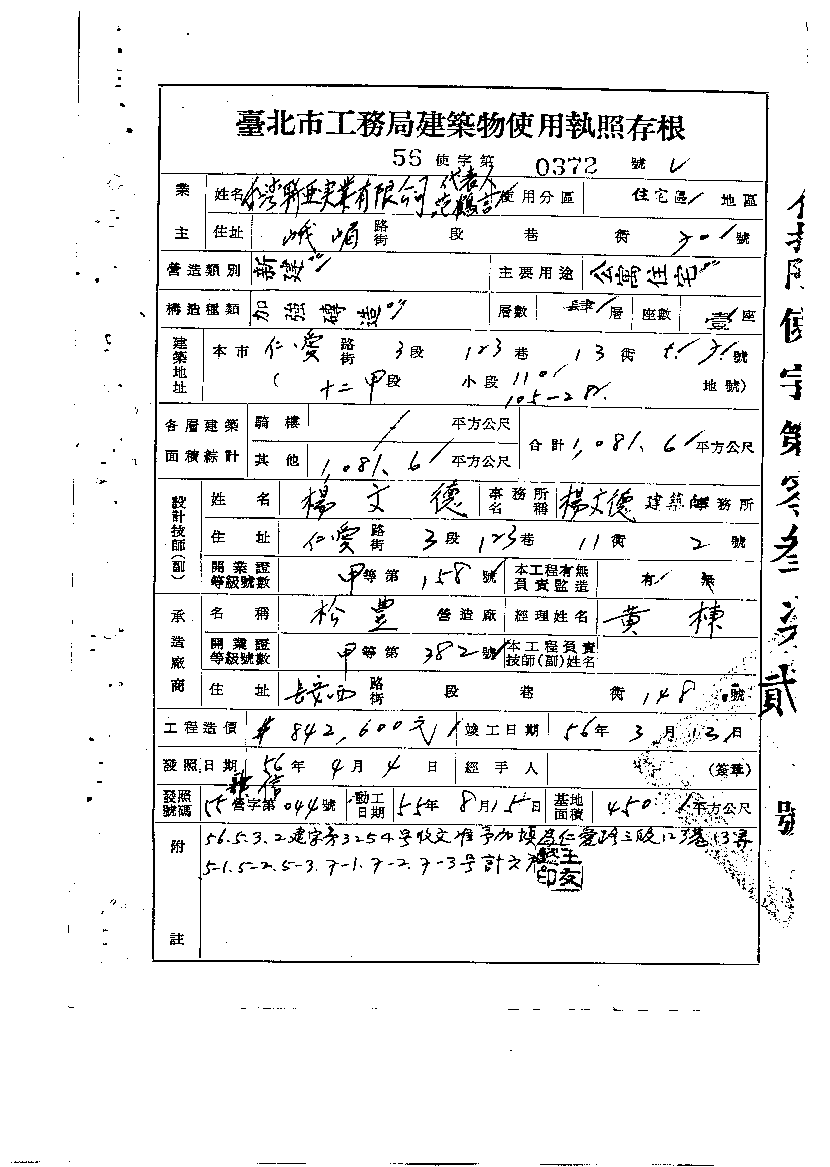 臺北市工務局建築物使用執照存根
56 使字第 0372 號
業主 姓名 台灣新亞実業有限公司 代表人 使用分區 住宅區 地區
住址 峨嵋 路街 段 巷 衖 號
營造類別 新建 主要用途 公寓住宅
構造種類 加強磚造 層數 肆 層 座數 壹 座
建築地址 本市 仁愛 路街 3 段 123 巷 13 衖 5. 7. 號
( 十二甲 段 小段 110 105-28 地號)
各層建築面積綜計 騎樓 平方公尺 合計 1,081.6 平方公尺
其他 1,081.6 平方公尺
設計技師(副) 姓名 楊文德 事務所名稱 楊文德 建築師事務所
住址 仁愛 路街 3 段 123 巷 11 衖 2 號
開業證等級號數 甲 等第 158 號 本工程有無負實監造 有 無
承造廠商 名稱 松豊 營造廠 經理姓名 黃棟
開業證等級號數 甲 等第 382 號 本工程負實技師(副)姓名
住址 長安西 路街 段 巷 衖 148 號
工程造價 # 842,600元 竣工日期 56 年 3 月 13 日
發照日期 56 年 4 月 4 日 經手人 (簽章)
發照號碼 55 營字第 044 號 動工日期 55 年 8 月 15 日 基地面積 450 平方公尺
附註 56.5.3.2建字第3254号收文准予加填為仁愛路三段123巷13弄
5-1.5-2.5-3.7-1.7-2.7-3号計六户
使字第零叁柒貳號